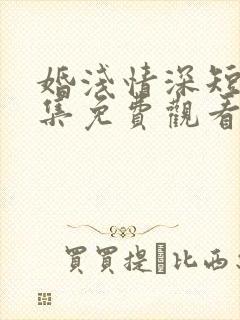 婚淺情深短
集免費觀看
買買提·比西